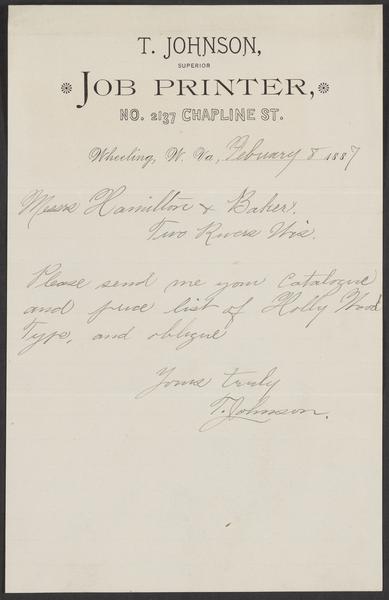 T. JOHNSON,
SUPERIOR
JOB PRINTER,
NO. 2137 CHAPLINE ST.
Wheeling, W. Va, February 8 1887
Messrs Hamilton & Baker.
Two Rivers Wis.
Please send me your Catalogue
and price list of Holly Wood
Type, and oblige
Yours truly
T. Johnson.